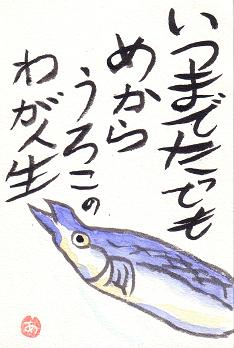 いつまでたっても
めから
うろこの
わが人生
あ